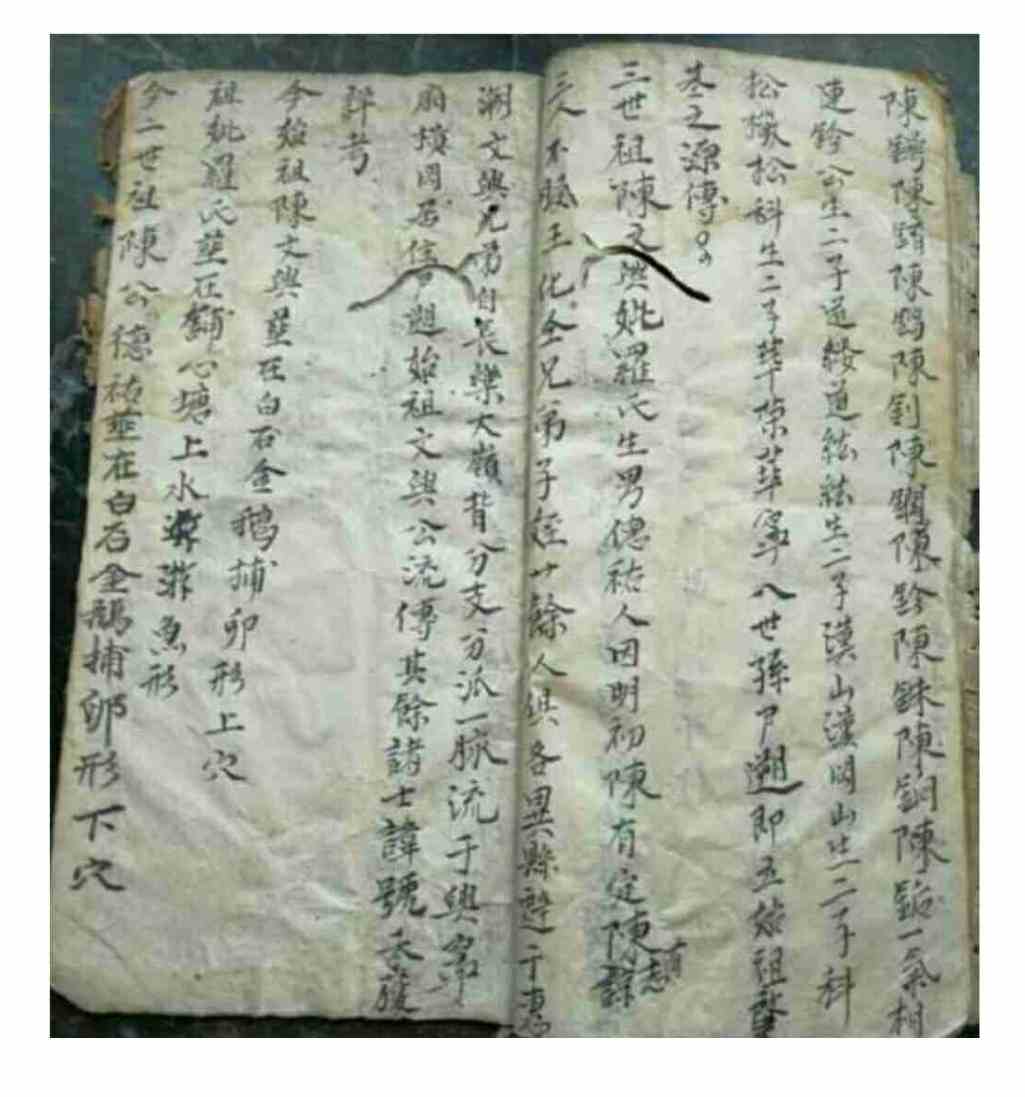 陳鏄陳錆陳鎢陳釗陳鐗陳鈴陳銖陳銅陳鉐一氣相
連鈴公生二子道綾道紘紘生二子漢山漢閃山生二子科
松機松科生二子華榮華寧八世孫尸遡即立始祖啓
基之源傳
三世祖陳文興妣羅氏生男德祐人因明初陳有定陳有諒志
三人不服王化全兄弟子侄十餘人俱各異縣避于惠
潮文興兄弟自長樂大嶺背分支分派一脉流于興寧
廟墳因居住 遡始祖文興公流傳其餘諸士諱號未獲
詳考
今始祖陳文興塟在白石金鵝捕卵形上穴
祖妣羅氏塟在鋪心塘上水游魚形
今二世祖陳公德祐塟在白石金鵝捕卵形下穴